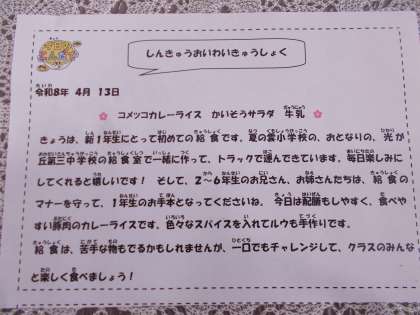 しんきゅうおいわいきゅうしょく
令和8年 4月 13日
コメッコカレーライス かいそうサラダ 牛乳
きょうは、新1年生にとって初めての給食です。夏の雲小学校の、おとなりの、光が
丘第三中学校の給食室で一緒に作って、トラックで運んできています。毎日楽しみに
してくれると嬉しいです！ そして、2～6年生のお兄さん、お姉さんたちは、給食の
マナーを守って、1年生のお手本となってくださいね。今日は配膳もしやすく、食べや
すい豚肉のカレーライスです。色々なスパイスを入れてルウも手作りです。
給食は、苦手な物もでるかもしれませんが、一口でもチャレンジして、クラスのみんな
と楽しく食べましょう！